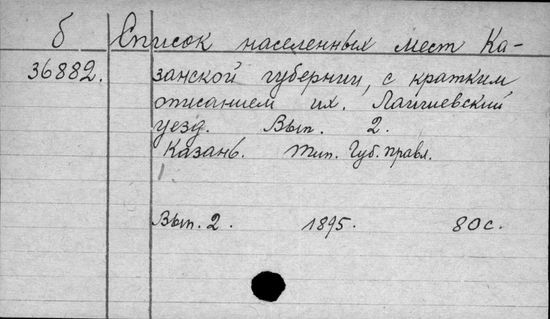 б Список населенных мест Ка-
36882. занской губернии, с кратким
описанием их. Лаишевский
уезд. Вып. 2.
Казань. Тип. Губ. правл.
Вып. 2. 1895. 80 с.